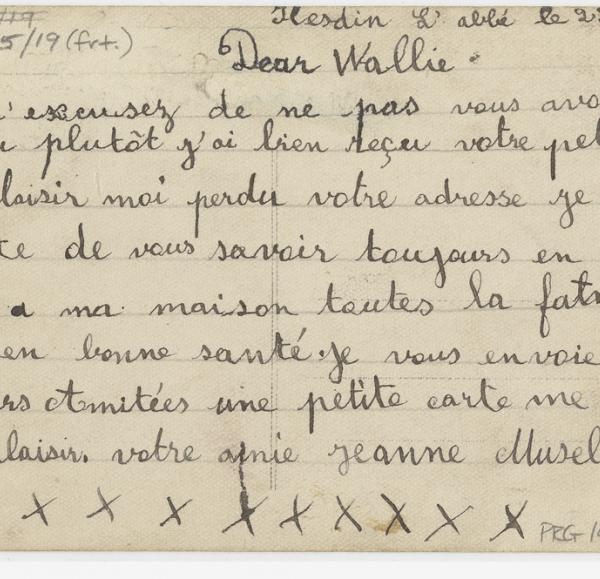 Hesdin L'abbé le 2
5/19 (frt.)
Dear Wallie
'excusez de ne pas vous avo
plutôt j'ai bien reçu votre pet
laisir moi perdu votre adresse je
te de vous savoir toujours en
a ma maison toutes la fam
en bonne santé. Je vous envoie
rs Amitées une petite carte me
laisir. votre amie Jeanne Musel
X X X X X X X X X
PRG